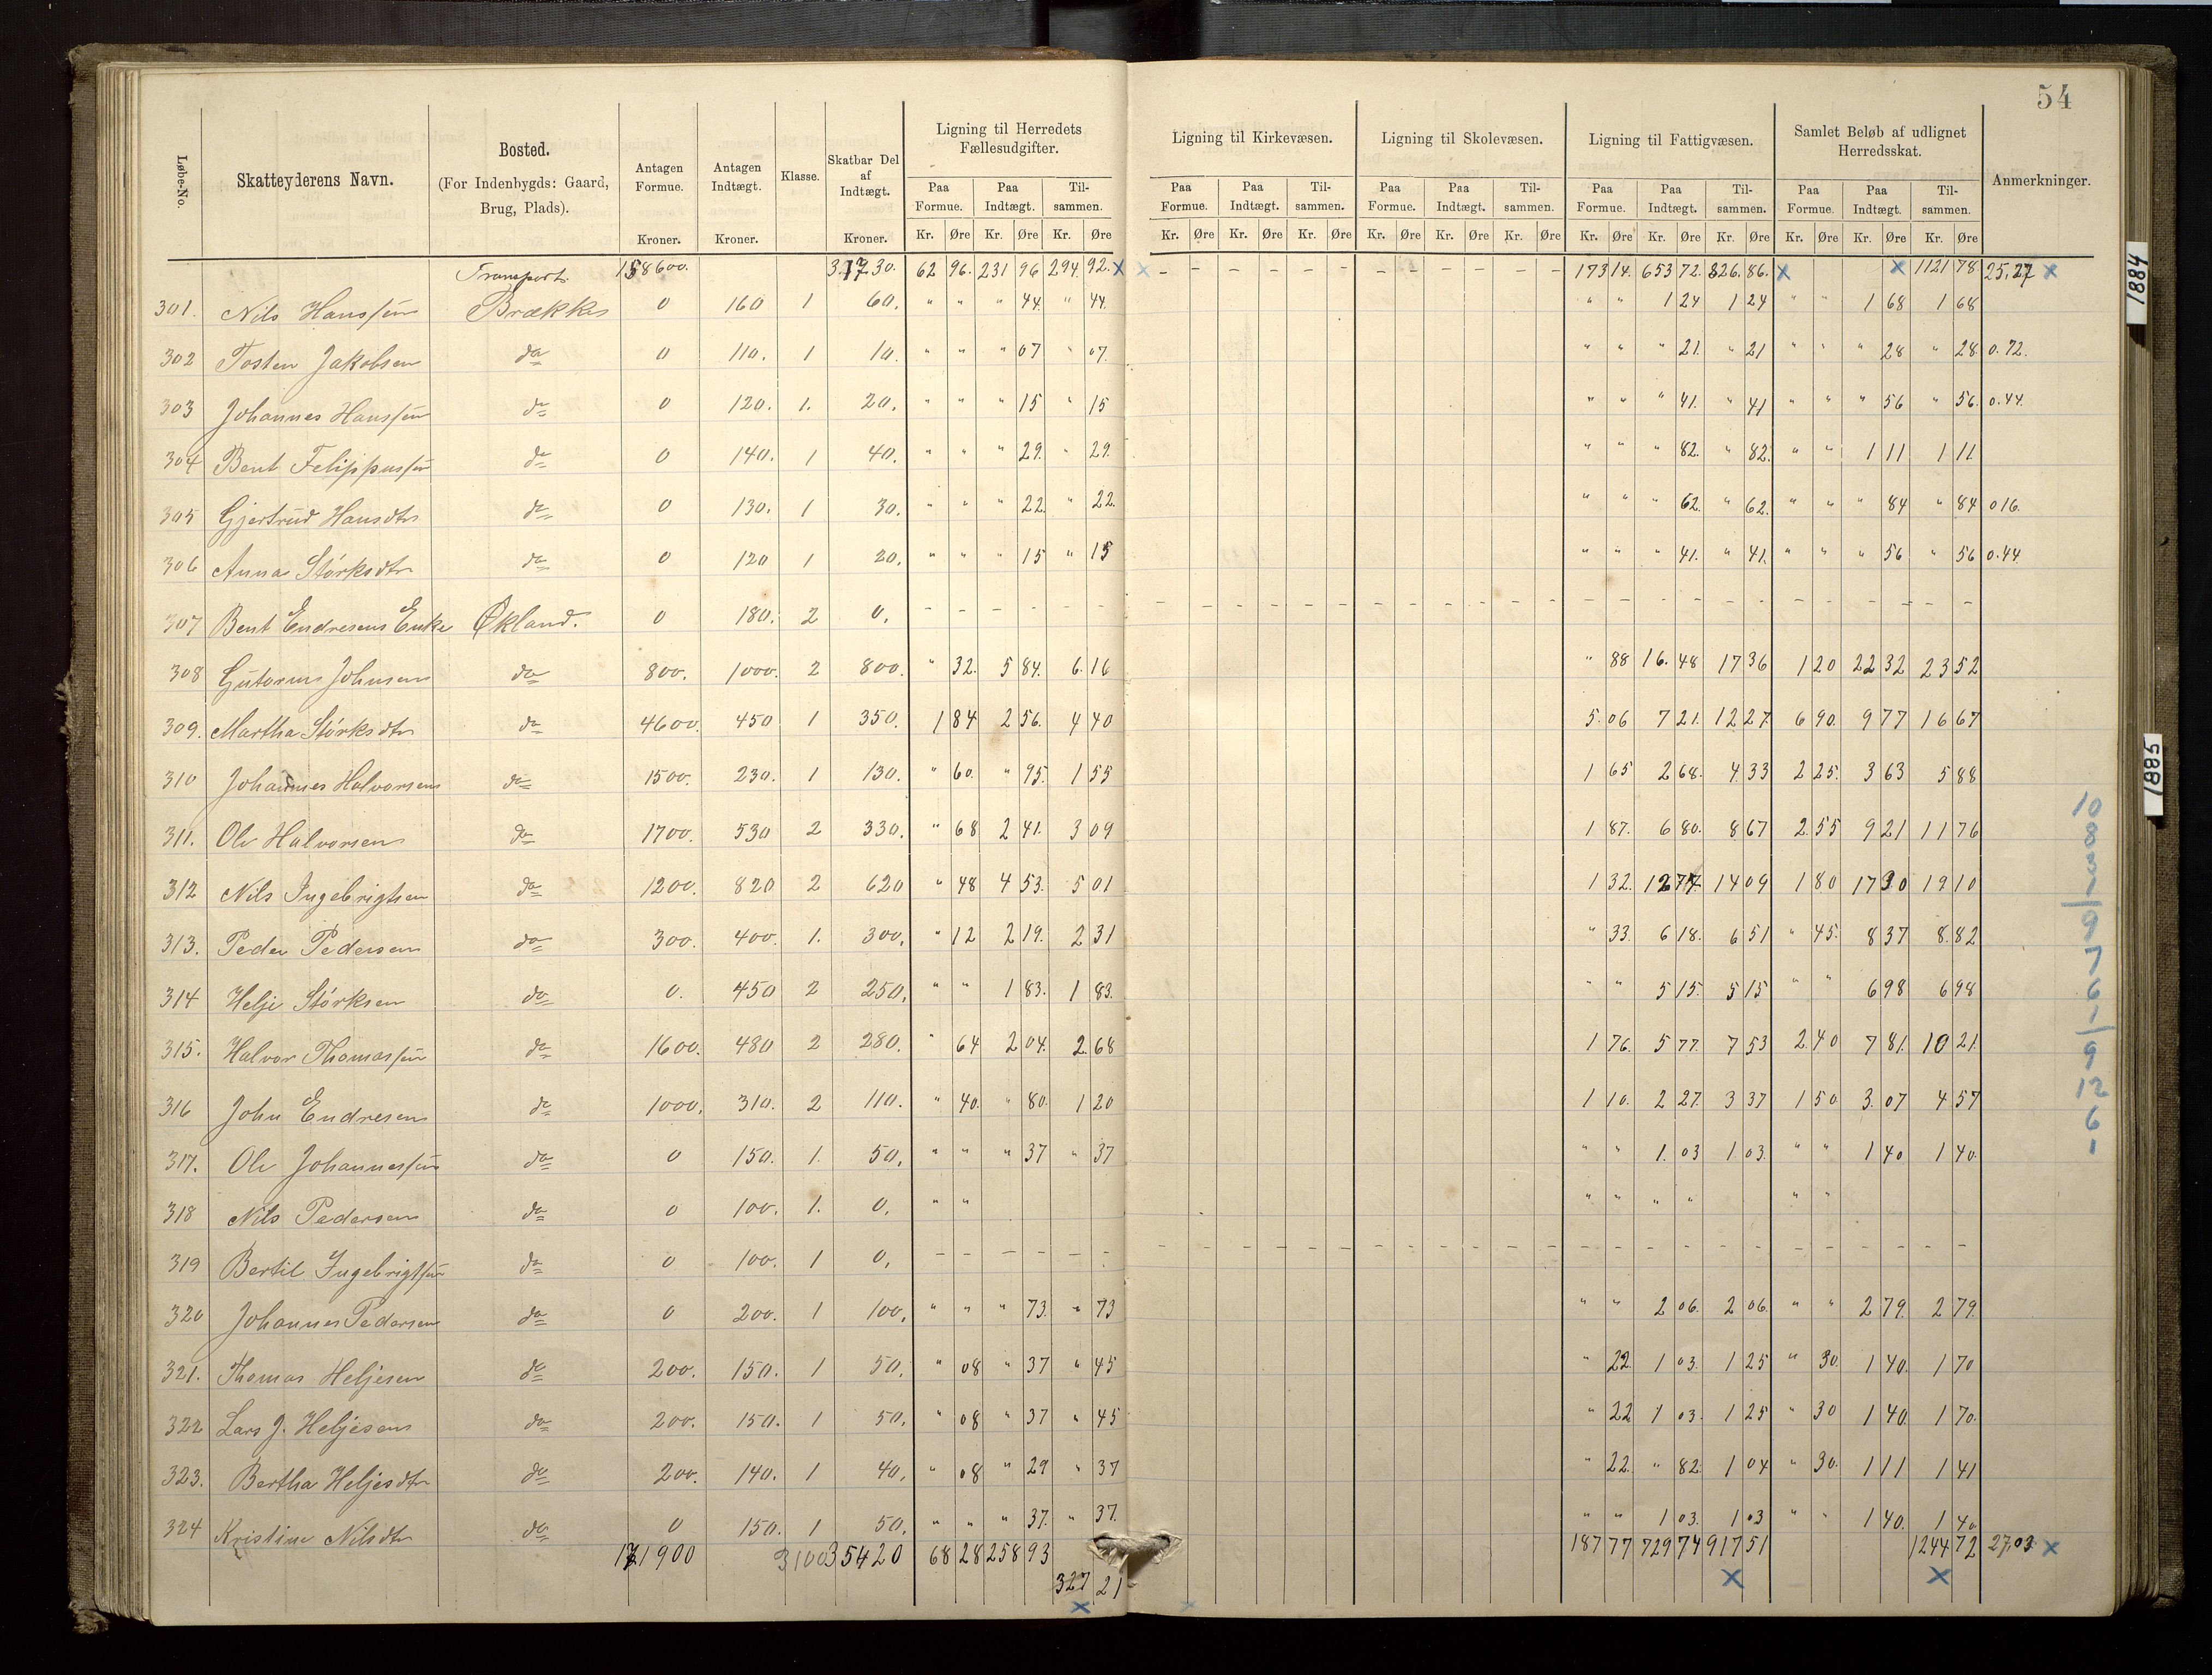 54
Løbe-No. Skatteyderens Navn. Bosted. (For Indenbygds: Gaard, Brug, Plads). Antagen Formue. Kroner. Antagen Indtægt. Kroner. Klasse. Skatbar Del af Indtægt. Kroner. Ligning til Herredets Fællesudgifter. Ligning til Kirkevæsen. Ligning til Skolevæsen. Ligning til Fattigvæsen. Samlet Beløb af udlignet Herredsskat. Anmerkninger.
Paa Formue. Paa Indtægt. Til-sammen. Paa Formue. Paa Indtægt. Til-sammen. Paa Formue. Paa Indtægt. Til-sammen. Paa Formue. Paa Indtægt. Til-sammen. Paa Formue. Paa Indtægt. Til-sammen.
Kr. Øre Kr. Øre Kr. Øre Kr. Øre Kr. Øre Kr. Øre Kr. Øre Kr. Øre Kr. Øre Kr. Øre Kr. Øre Kr. Øre Kr. Øre Kr. Øre Kr. Øre
Transport. 158600. 62 96. 231 96 294. 92. x x 173 14. 653 72. 826. 86. x x 1121 78. 25,27 x
301. Nils Hanssen Brække 0 160 1 60. " " " 44. " 44. " " 1 24 1 24 " " 1 68 1 68
302 Tosten Jakobsen do 0 110. 1 10. " " " 07 " 07. " " " 21. " 21 " " " 28 " 28. 0.72.
303 Johannes Hanssen do 0 120. 1. 20. " " " 15 " 15 " " " 41. " 41 " " " 56 " 56. 0.44.
304 Bent Felippussen do 0 140. 1 40. " " " 29. " 29. " " " 82. " 82. " " 1 11 1 11
305 Gjertrud Hansdtr do 0 130. 1 30. " " " 22. " 22. " " " 62. " 62. " " " 84 " 84 0 16.
306 Anna Størksdtr do 0 120 1 20. " " " 15 " 15 " " " 41. " 41. " " " 56 " 56 0.44.
307 Bent Endresens Enke Økland. 0 180. 2 0. - - - - - -
308 Gutorm Johnsen do 800. 1000. 2 800. " 32. 5 84. 6. 16 " 88 16. 48 17 36 1 20 22 32 23 52
309. Martha Størksdtr do 4600. 450 1 350. 1 84 2 56. 4 40 5. 06 7 21. 12 27. 6 90. 9 77 16 67
310 Johannes Halvorsen do 1500. 230. 1 130. " 60. " 95. 1 55 1 65 2 68. 4 33 2 25. 3 63 5 88
311. Ole Halvorsen do 1700. 530 2 330. " 68 2 41. 3 09 1 87. 6 80. 8 67 2 55 9 21 11 76
312 Nils Ingebrigtsen do 1200. 820 2 620 " 48 4 53. 5 01 1 32. 12 77 14 09 1 80 17 30 19 10
313. Peder Pedersen do 300. 400. 1. 300. " 12 2 19. 2 31 " 33. 6 18. 6 51 " 45. 8 37 8. 82
314 Helje Størksen do 0. 450 2 250. " " 1 83. 1 83. " " 5 15. 5 15 " " 6 98 6 98
315. Halvor Thomassen do 1600. 480 2 280. " 64 2 04. 2. 68 1 76. 5 77. 7 53 2 40 7 81. 10 21.
316 John Endresen do 1000. 310. 2 110. " 40. " 80. 1 20 1 10. 2 27. 3 37 1 50 3. 07 4 57
317. Ole Johannessen do 0 150. 1. 50. " " " 37 " 37 " " 1. 03 1 03. " " 1 40 1 40.
318 Nils Pedersen do 0 100. 1. 0. " " " " " " " "
319 Bertil Ingebrigtsen do 0 100. 1 0. - - - - - -
320 Johannes Pedersen do 0 200. 1 100. " " " 73. " 73 " " 2 06. 2 06. " " 2 79. 2 79.
321. Thomas Heljesen do 200. 150. 1 50. " 08 " 37 " 45 " 22. 1 03. 1 25 " 30. 1 40. 1 70
322 Lars J. Heljesen do 200. 150. 1 50. " 08 " 37 " 45 " 22 1 03. 1 25 " 30 1 40. 1 70.
323. Bertha Heljesdtr do 200. 140. 1 40. " 08 " 29 " 37 " 22. " 82. 1 04 " 30. 1 11 1 41
324 Kristine Nilsdtr do 0 150. 1 50. " " " 37. " 37. " " 1 03. 1 03 " " 1 40. 1 40
171900 3100 35420 68 28 258 93 187 77 729 74 917 51 1244 72 27,03 x
327 21
x x x x
10
8
3
1
9
7
6
1
9
12
6
1
1884
1885